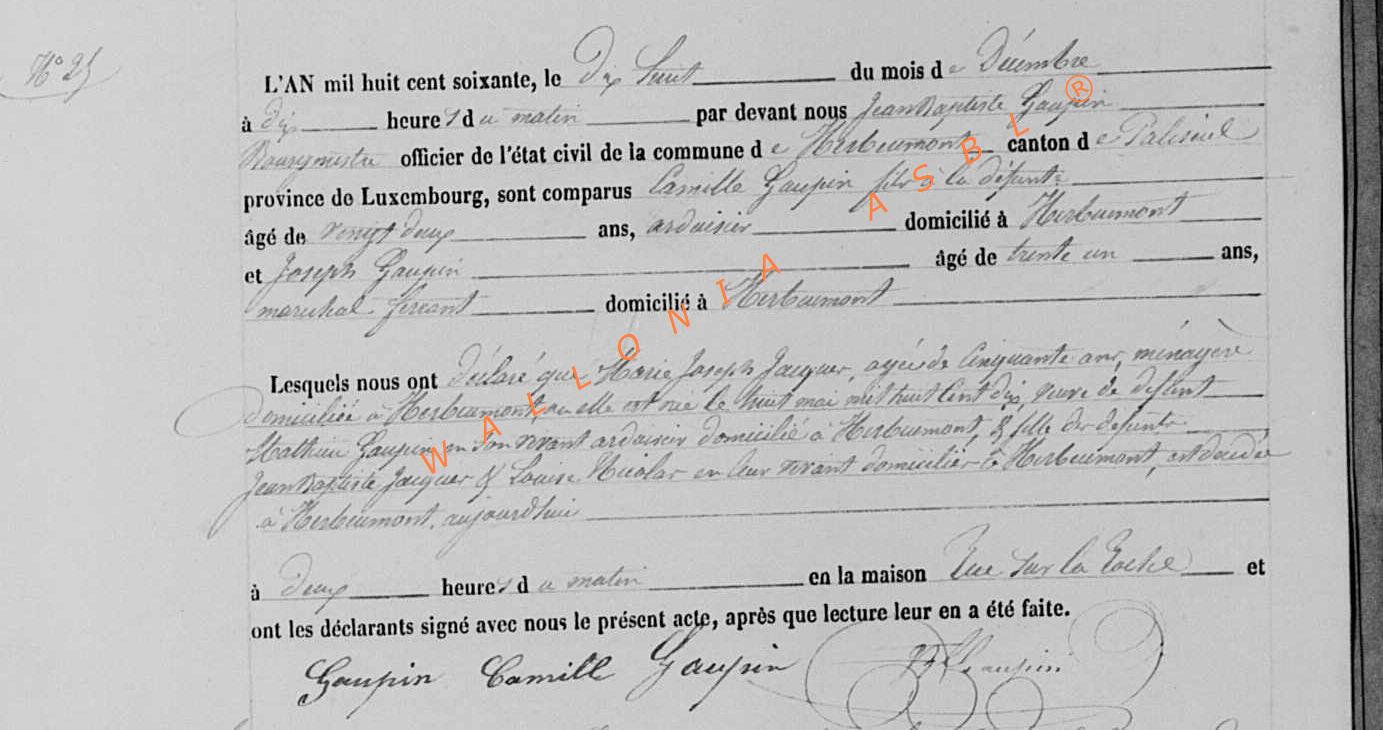 N° 25
L'AN mil huit cent soixante, le dix huit du mois de Décembre
à dix heures du matin par devant nous Jean Baptiste Gaupin
Bourgmestre officier de l'état civil de la commune de Herbeumont canton de Paliseul
province de Luxembourg, sont comparus Camille Gaupin fils à la défunte
âgé de vingt deux ans, ardoisier domicilié à Herbeumont
et Joseph Gaupin âgé de trente un ans,
marechal ferrant domicilié à Herbeumont
Lesquels nous ont déclaré que Marie Joseph Jacques, agée de Cinquante ans, ménagère
domiciliée à Herbeumont, ou elle est née le huit mai mil huit Cent dix, veuve de defunt
Mathieu Gaupin en son vivant ardoisier domicilié à Herbeumont, & fille des defunts
Jean Baptiste Jacques & Louise Nicolas en leur vivant domiciliés à Herbeumont, est decédée
à Herbeumont, aujourd'hui
à deux heures du matin en la maison Rue sur la Roche et
ont les déclarants signé avec nous le présent acte, après que lecture leur en a été faite.
Gaupin Camille Gaupin JB Gaupin
WALLONIA ASBL ®